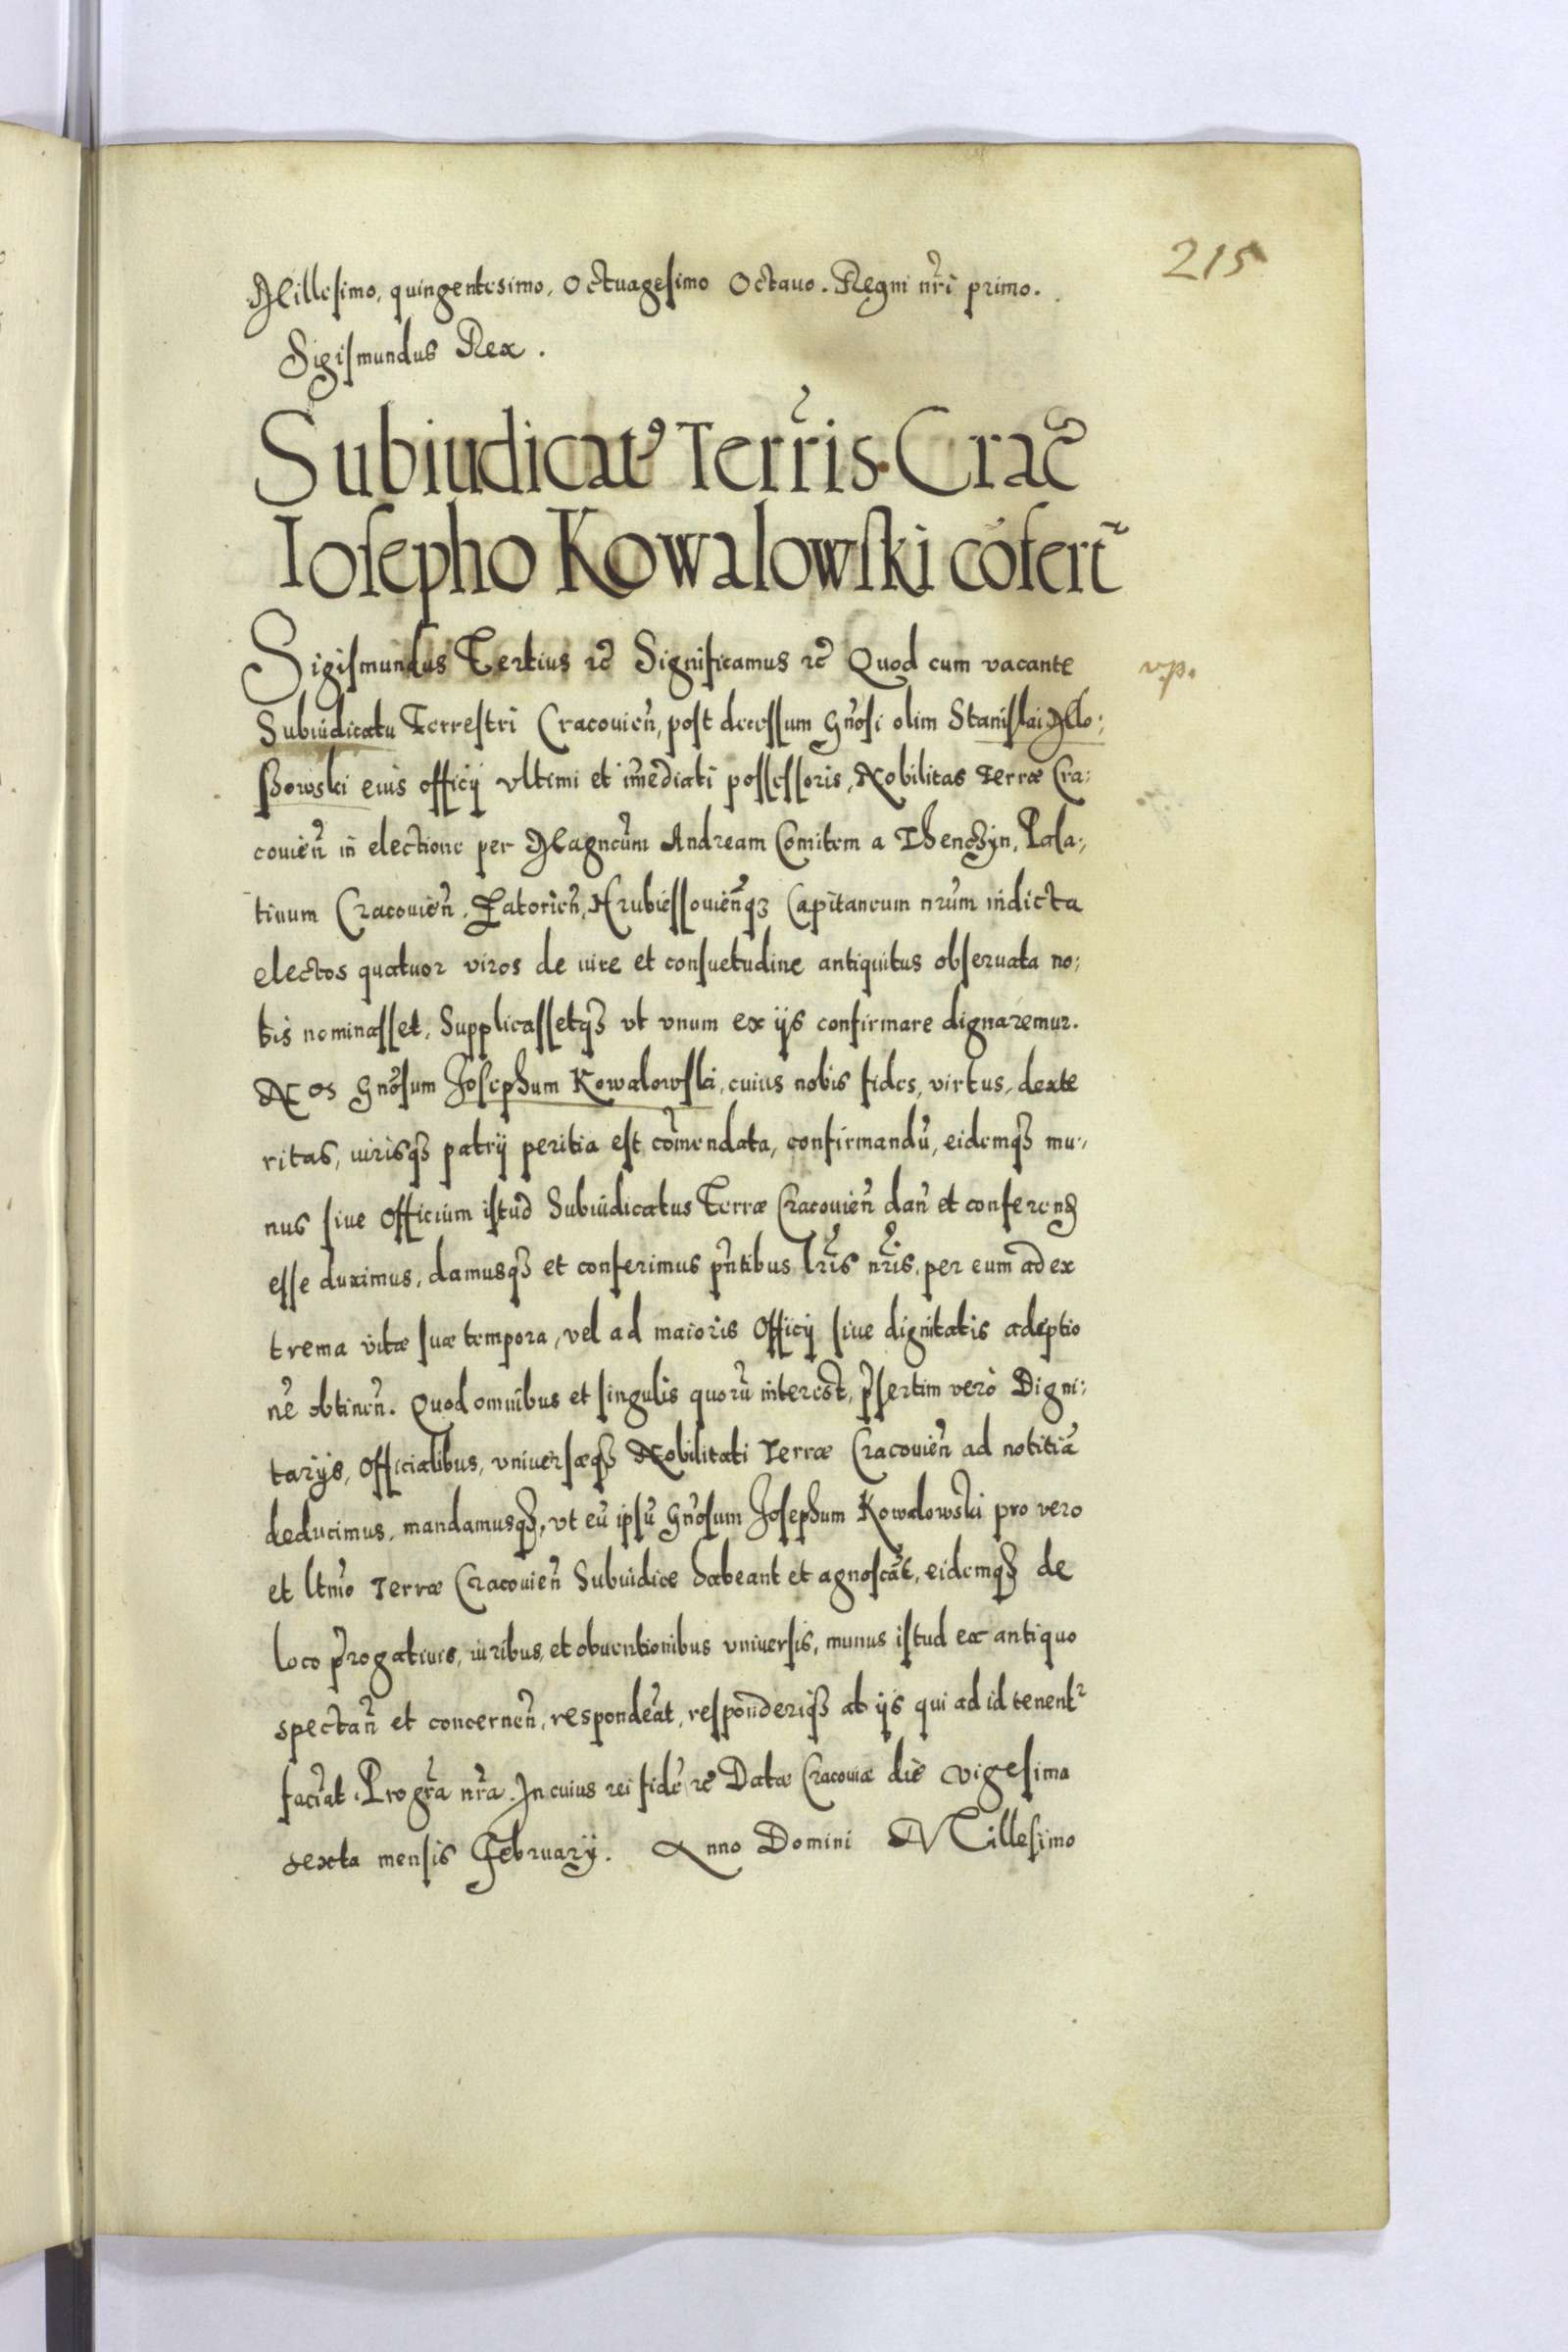 215
Millesimo, quingentesimo, Octuagesimo Octauo. Regni nr̃i primo.
Sigismundus Rex.
Subiudicat9 Terr̃is. Crac̃
Iosepho Kowalowski cõfert~
Sigismundus Tertius rc̃ Significamus rc̃ Quod cum vacante
vp.
Subiudicatu Terrestri Cracouien̄, post decessum Gn̄osi olim Stanislai Mlo:
szowski eius officij vltimi et im̄ediati possessoris, Nobilitas Terræ Cra:
couien̄ in electione per Magncũm Andream Comitem a Thenczyn, Pala:,
tinum Cracouien̄, Zatorien̄, Hrubiessouien̄qȝ Capitaneum nrũm indicta
electos quatuor viros de iure et consuetudine antiquitus obseruata no:
bis nominasset, Supplicassetqȝ vt vnum ex ijs confirmare dignaremur.
Nos Gnõsum Josephum Kowalowski, cuius nobis fides, virtus, dexte
ritas, iurisqȝ patrij peritia est com̄endata, confirmandũ, eidemqȝ mu:,
nus siue Officium istud Subiudicatus Terræ Cracouien̄ dan̄ et conferend
esse duximus, damusqȝ et conferimus pñtibus lrĩs nrĩs, per eum ad ex
trema vitæ suæ tempora, vel ad maioris Officij siue dignitatis adeptio
nẽ obtinen̄. Quod omnibus et singulis quorũ interest, p̃sertim verò Digni:
tarijs, Officialibus, vniuersæqȝ Nobilitati Terræ Cracouien̄ ad notitiã
deducimus, mandamusqȝ, vt eũ ipsũ Gnõsum Josephum Kowalowski pro vero
et ltmõ Terræ Cracouien̄ Subiudice habeant et agnoscãt, eidemqȝ de
loco p̃rogatiuis, iuribus, et obuentionibus vniuersis, munus istud ex antiquo
spectan̄ et concernen̄, respondeãt, responderiqȝ ab ijs qui ad id tenent~
faciãt. Pro grã nrã. In cuius rei fidẽ rc̃ Datæ Cracouiæ die vigesima
sexta mensis February. Anno Domini Millesimo